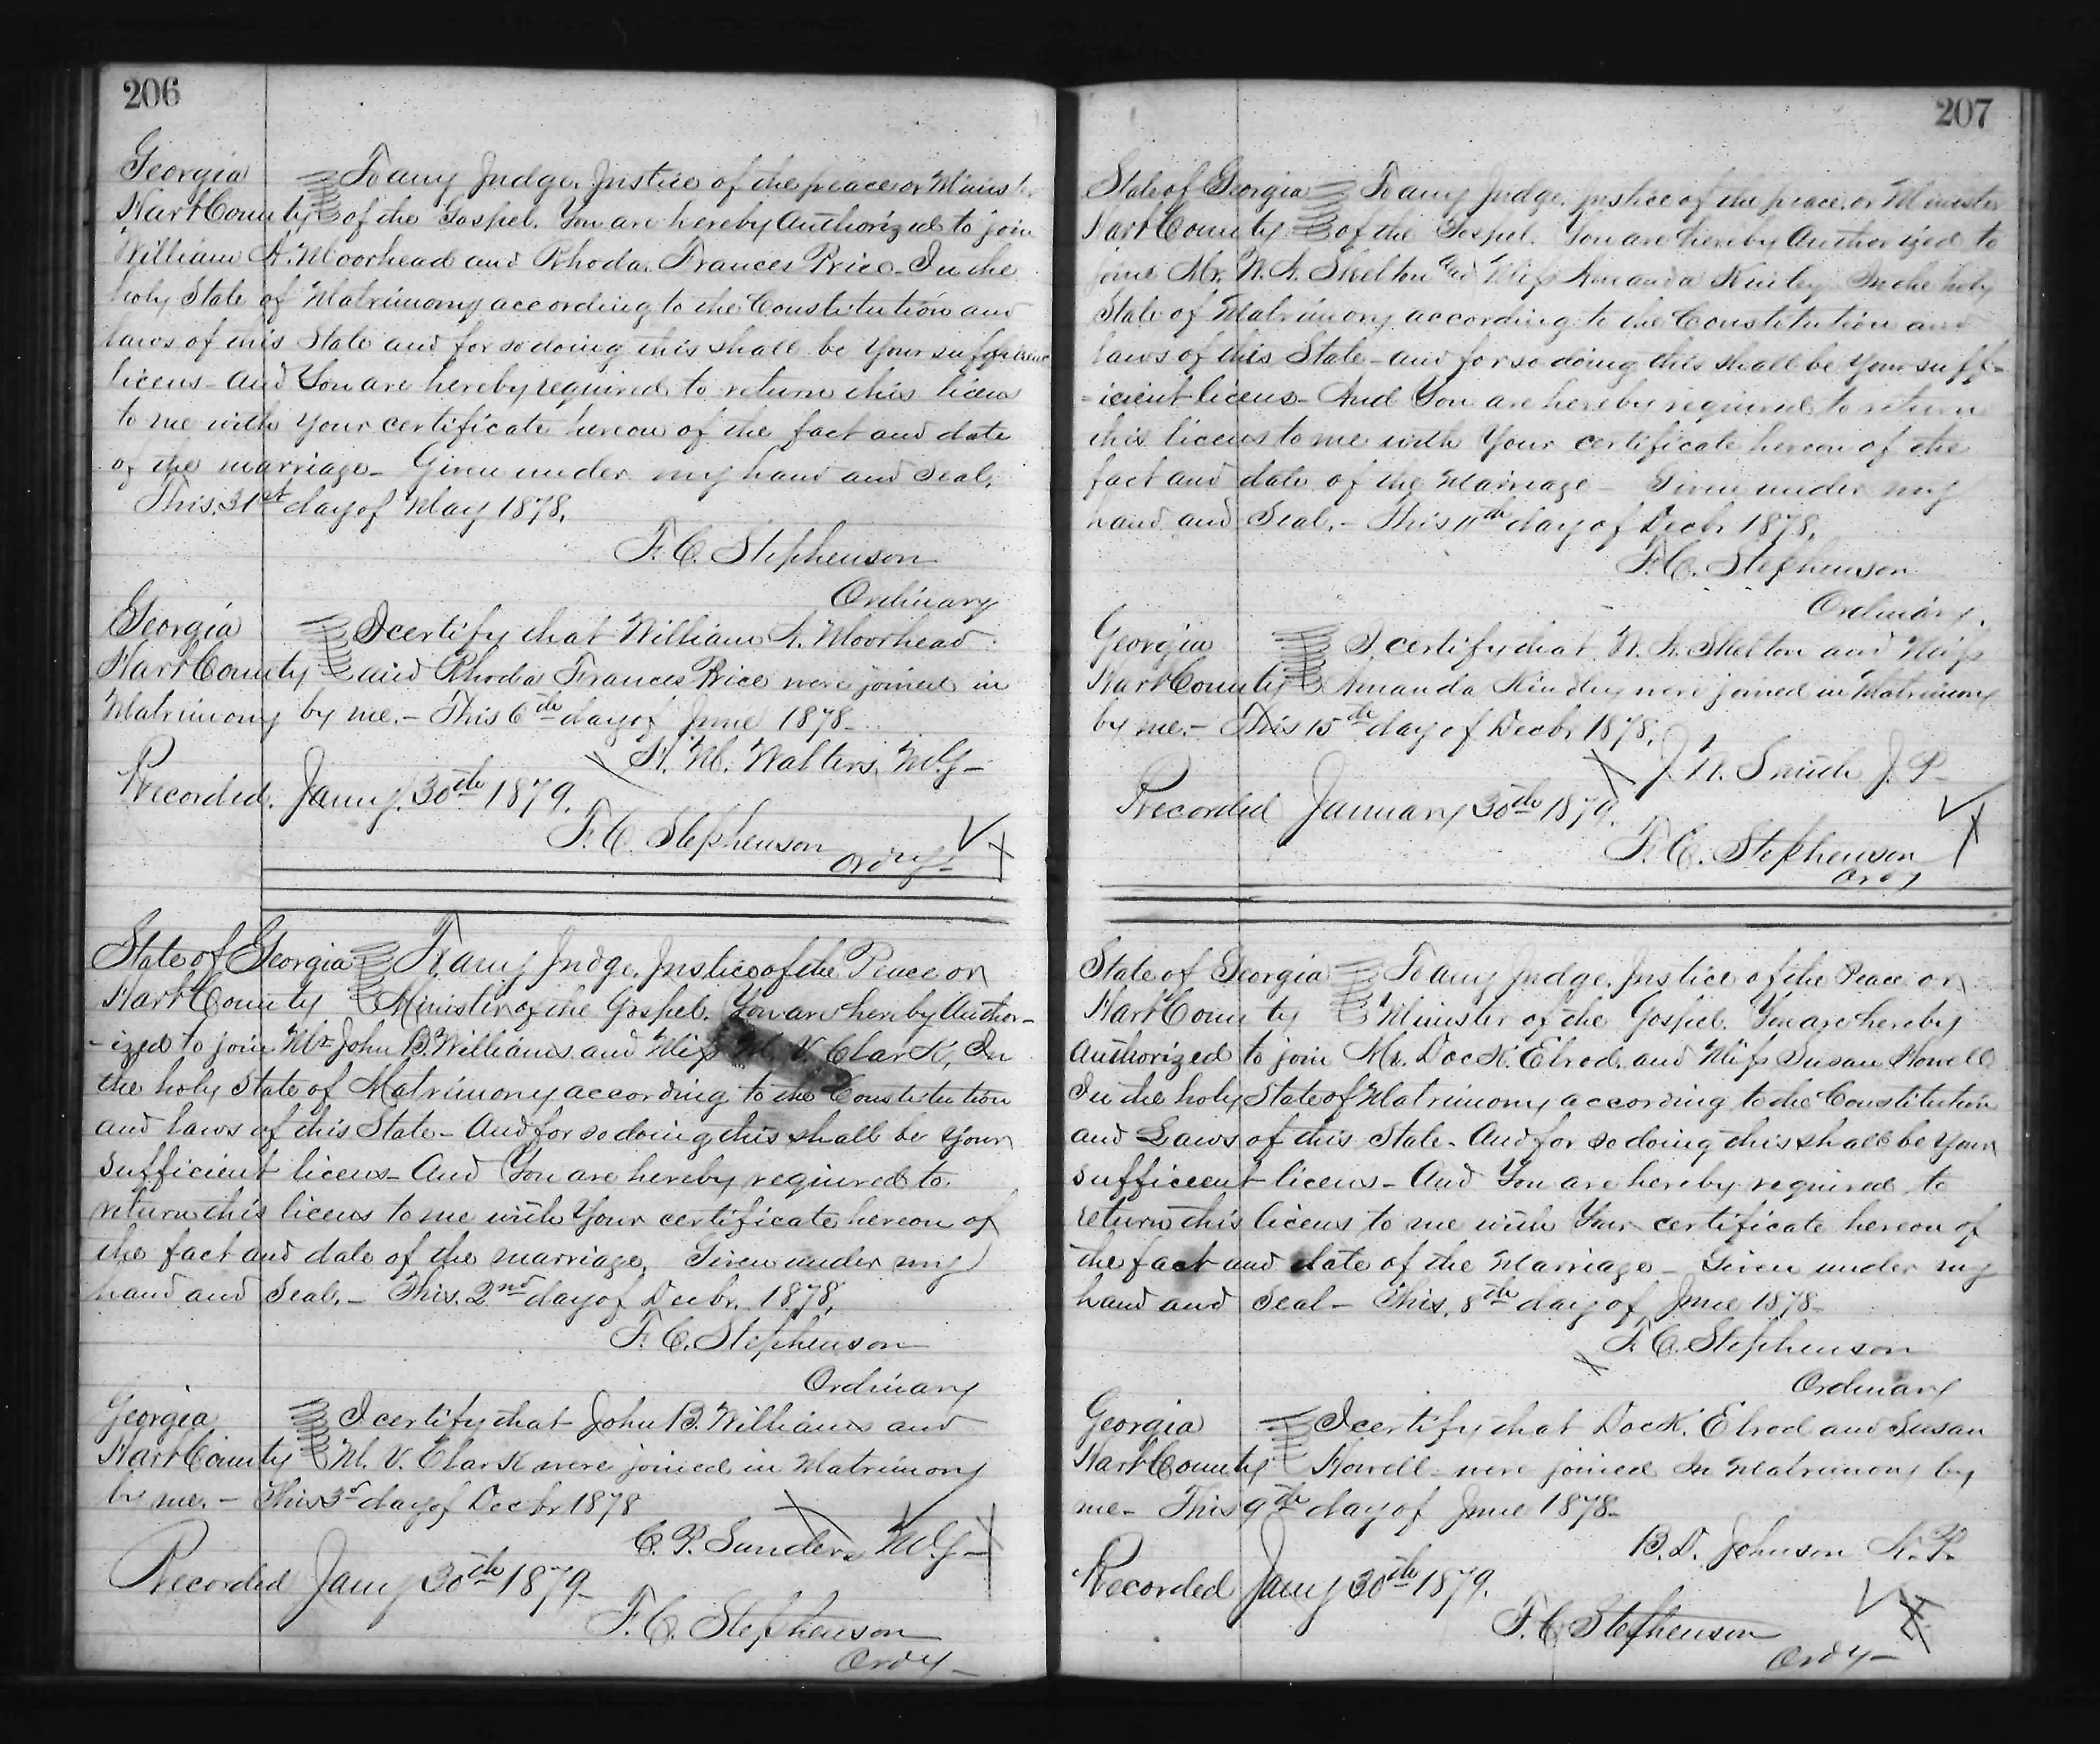 206
Georgia To any Judge, Justice of the peace or Minister
Hart County of the Gospel. You are hereby Authorized to join
William A. Moorhead and Rhoda Frances Price - In the
holy State of Matrimony according to the Constitution and
laws of this State and for so doing this shall be your
licens - And You are hereby required to return this licens
to me with your certificate hereon of the fact and date
of the marriage - Given under my hand and Seal,
This 31st day of May 1878,
F. C. Stephenson
Ordinary
Georgia I certify that William A. Moorhead
Hart County and Rhoda Frances Price were joined in
Matrimony by me. - This 6th day of June 1878 -
W. Walters, M.G -
Recorded. Jany. 30th 1879.
F. C. Stephenson
Ordy -
State of Georgia To any Judge, Justice of the Peace or
Hart County Minister of the Gospel. You are hereby Author-
-ized to join Mr John B. Williams and Miss M. V. Clark, In
the holy State of Matrimony according to the Constitution
and laws of this State - And for so doing this shall be your
sufficient licens - And You are hereby required to
return this licens to me with Your certificate hereon of
the fact and date of the marriage, Given under my
hand and Seal, - This 2nd day of Decbr. 1878,
F. C. Stephenson
Ordinary
Georgia I certify that John B. Williams and
Hart County M. V. Clark were joined in Matrimony
by me. - This 3d day of Decbr 1878
C. P. Sanders M.G -
Recorded Jany 30th 1879 -
F. C. Stephenson
Ordy -
207
State of Georgia To any Judge, Justice of the peace, or Minister
Hart County of the Gospel. You are hereby Authorized to
join Mr. W. A. Skelton and Miss Amanda In the holy
State of Matrimony according to the Constitution and
laws of this State - and for so doing this shall be your suff-
-icient licens - And You are hereby required to return
this licens to me with Your certificate hereon of the
fact and date of the Marriage - Given under my
hand and Seal, - This 11th day of Decbr 1878,
F. C. Stephenson
Ordinary.
Georgia I certify that W. A. Skelton and Miss
Hart County Amanda were joined in Matrimony
by me. - This 15th day of Decbr 1878,
J. N. Smith J. P -
Recorded January 30th 1879.
F. C. Stephenson
Ordy
State of Georgia To any Judge, Justice of the Peace or
Hart County Minister of the Gospel. You are hereby
Authorized to join Mr. Doc K. Elrod, and Miss Susan Howell
In the holy State of Matrimony according to the Constitution
and Laws of this State - And for so doing this shall be Your
sufficient licens - And You are hereby required to
return this licens to me with Your certificate hereon of
the fact and date of the Marriage - Given under my
hand and Seal - This 8th day of June 1878 -
F. C. Stephenson
Ordinary
Georgia I certify that Doc K. Elrod and Susan
Hart County Howell were joined In Matrimony by
me - This 9th day of June 1878 -
B. D. Johnson N. P.
Recorded Jany 30th 1879.
F. C. Stephenson
Ordy -